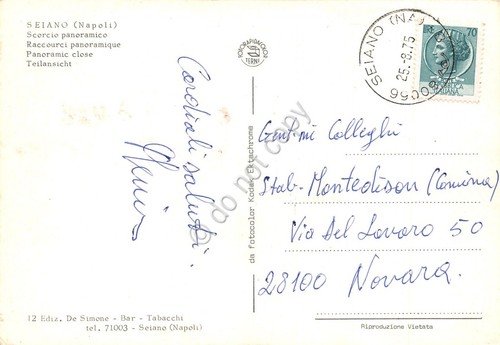 SEIANO (Napoli)
Scorcio panoramico
Raccourci panoramique
Panoramic close
Teilansicht
Cordiali saluti.
FOTORAPIDACOLOR
TERNI
da fotocolor Kodak Ektachrome
SEIANO (NA)
25.-8.75
80066
70
Gent.mi Colleghi
Stab. Montedison (Mensa)
Via Del Lavoro 50
28100 Novara
12 Ediz. De Simone - Bar - Tabacchi
tel. 71003 - Seiano (Napoli)
Riproduzione Vietata
do not copy